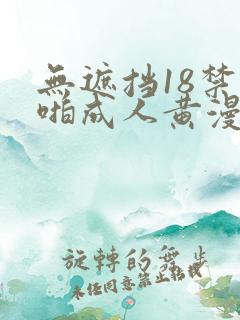 無遮挡18禁
啪成人黄漫
旋轉的舞步
未经同意禁止转载